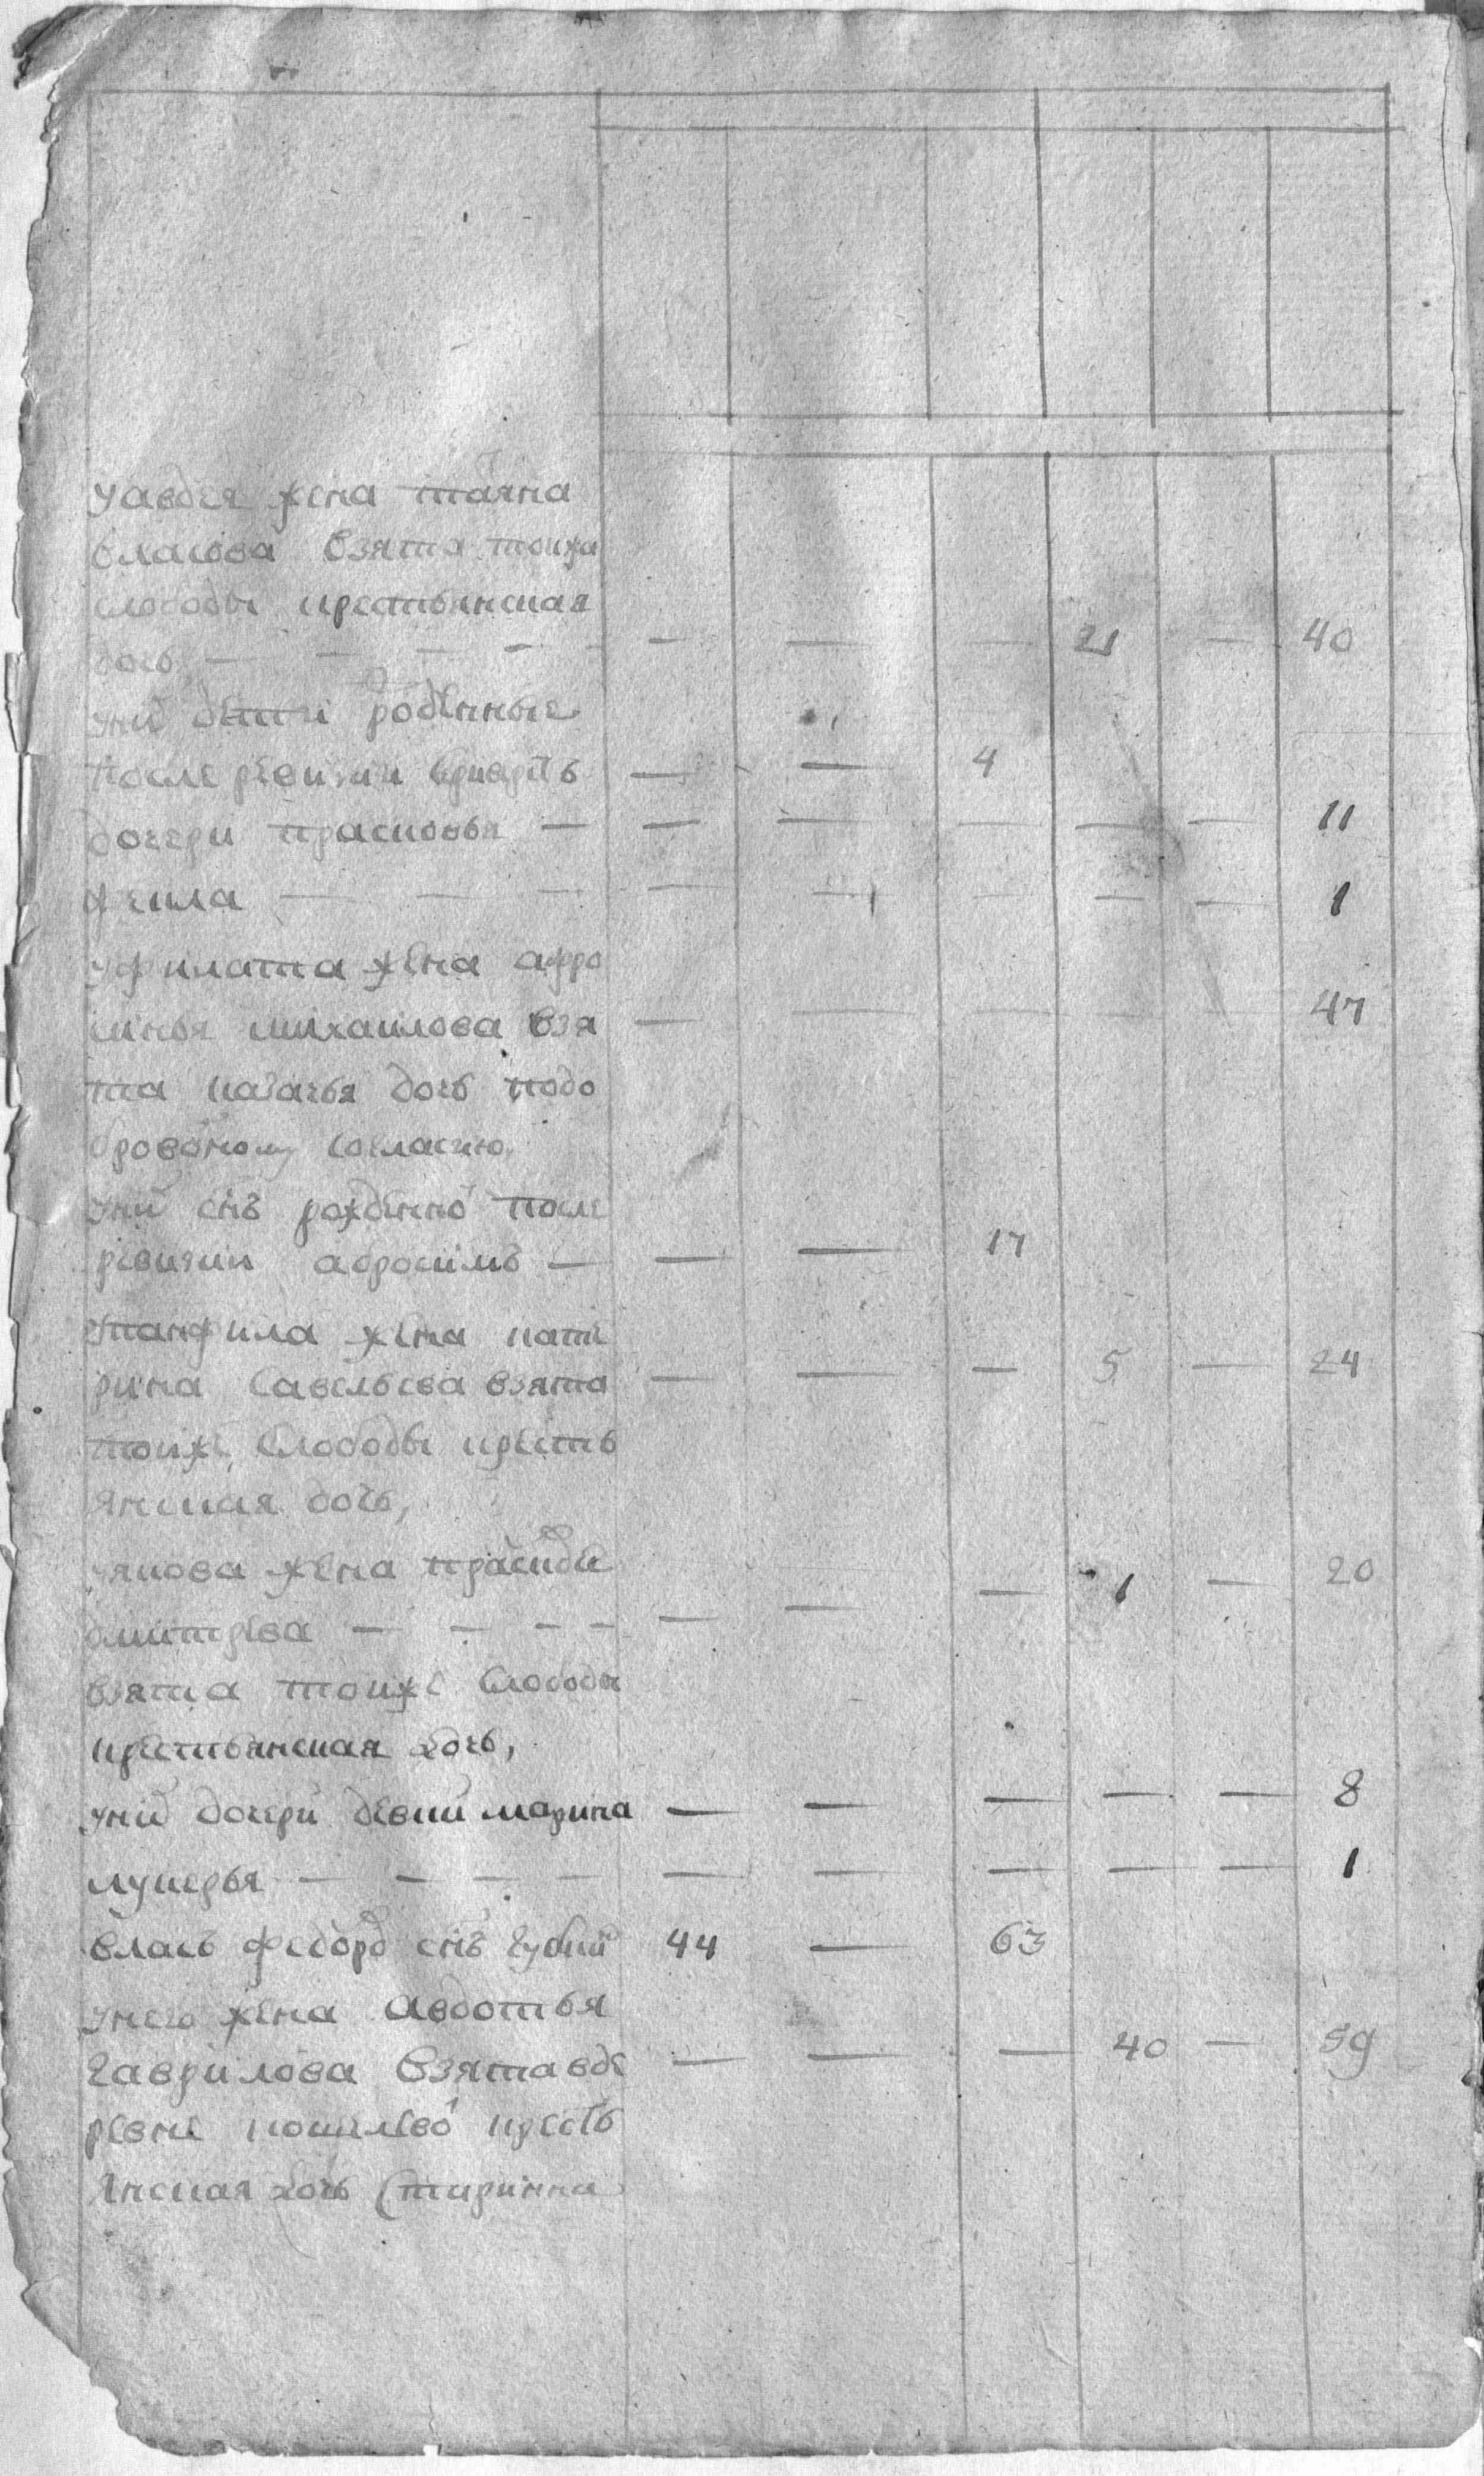 уавдея жена татяна
власова взята тоижа
слободы крестьянская — — — 21 — 40
дочь — — — —
уних дети рожденные
после ревизии кривргъ — — 4
дочери прасковья — — — — — — 11
фекла — — — — — — — — 1
уфилата жена афро
синья михаилова взя — — — — — 47
та казачья дочь подо
бровоному согласию,
уних снъ рожденно после
ревизии абросимъ — — — 17
упанфила жена кате
рина савельева взята — — — 5 — 24
тоиже слободы кресть
янская дочь,
уякова жена праскове — 1 — 20
дмитрева — — — — — —
взята тоиже слободы
крестьянская дочь,
уних дочери девки марина — — — — — 8
лукерья — — — — — — — — — 1
власъ федоров снъ 44 — 63
унего жена авдотья
гаврилова взята вде — — — 40 — 59
ревне кошелево кресть
янская дочь старинная